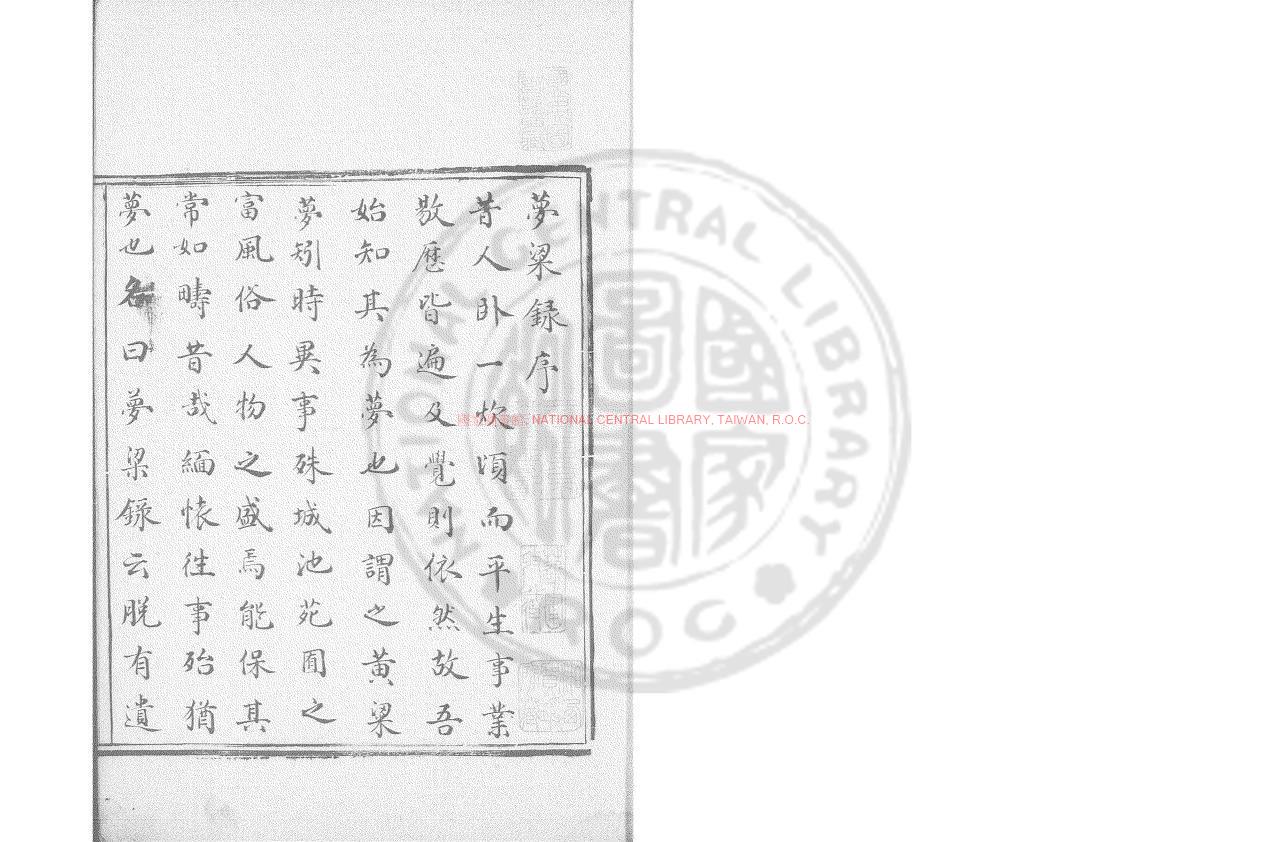 夢梁録序
昔人卧一炊頃而平生事業
敭歷皆遍及覺則依然故吾
始知其為夢也因謂之黃梁
夢矧時異事殊城池苑囿之
富風俗人物之盛焉能保其
常如疇昔哉緬懷徃事殆猶
夢也名曰夢梁錄云脫有遺
NATIONAL CENTRAL LIBRARY, TAIWAN, R.O.C.
NATIONAL CENTRAL LIBRARY
R.O.C
國家圖書館